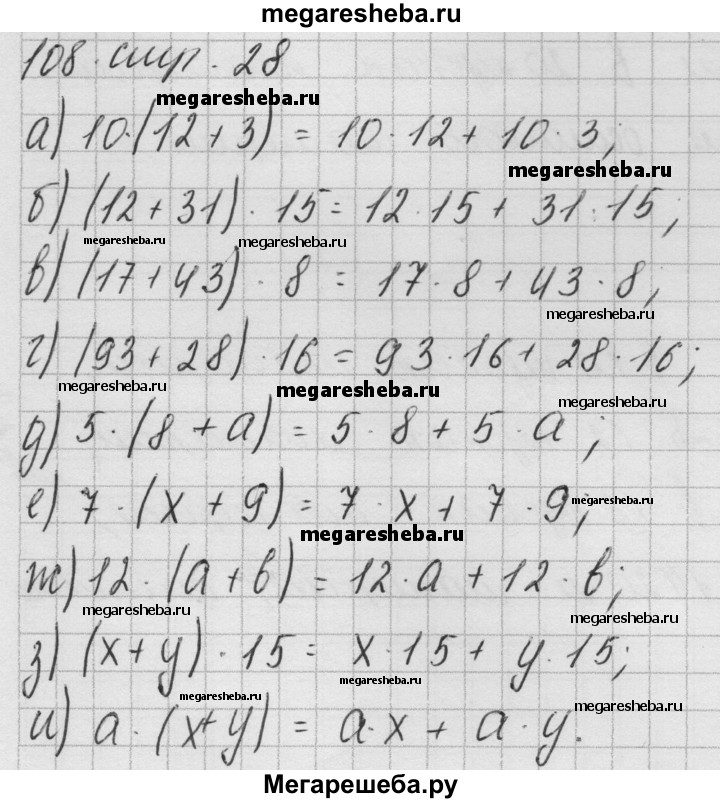 megaresheba.ru
108. стр. 28
megaresheba.ru
а) 10·(12+3) = 10·12+10·3;
megaresheba.ru
б) (12+31)·15=12·15+31·15;
megaresheba.ru megaresheba.ru
в) (17+43)·8 = 17·8+43·8;
megaresheba.ru
г) (93+28)·16=93·16+28·16;
megaresheba.ru megaresheba.ru megaresheba.ru
д) 5·(8+а) = 5·8+5·а;
е) 7·(х+9)=7·х+7·9;
megaresheba.ru
megaresheba.ru
ж) 12·(а+в) = 12·а+12·в;
megaresheba.ru megaresheba.ru
з) (х+у)·15= х·15+у·15;
megaresheba.ru
megaresheba.ru megaresheba.ru
и) а·(х+у) = а·х + а·у.
Мегарешеба.ру